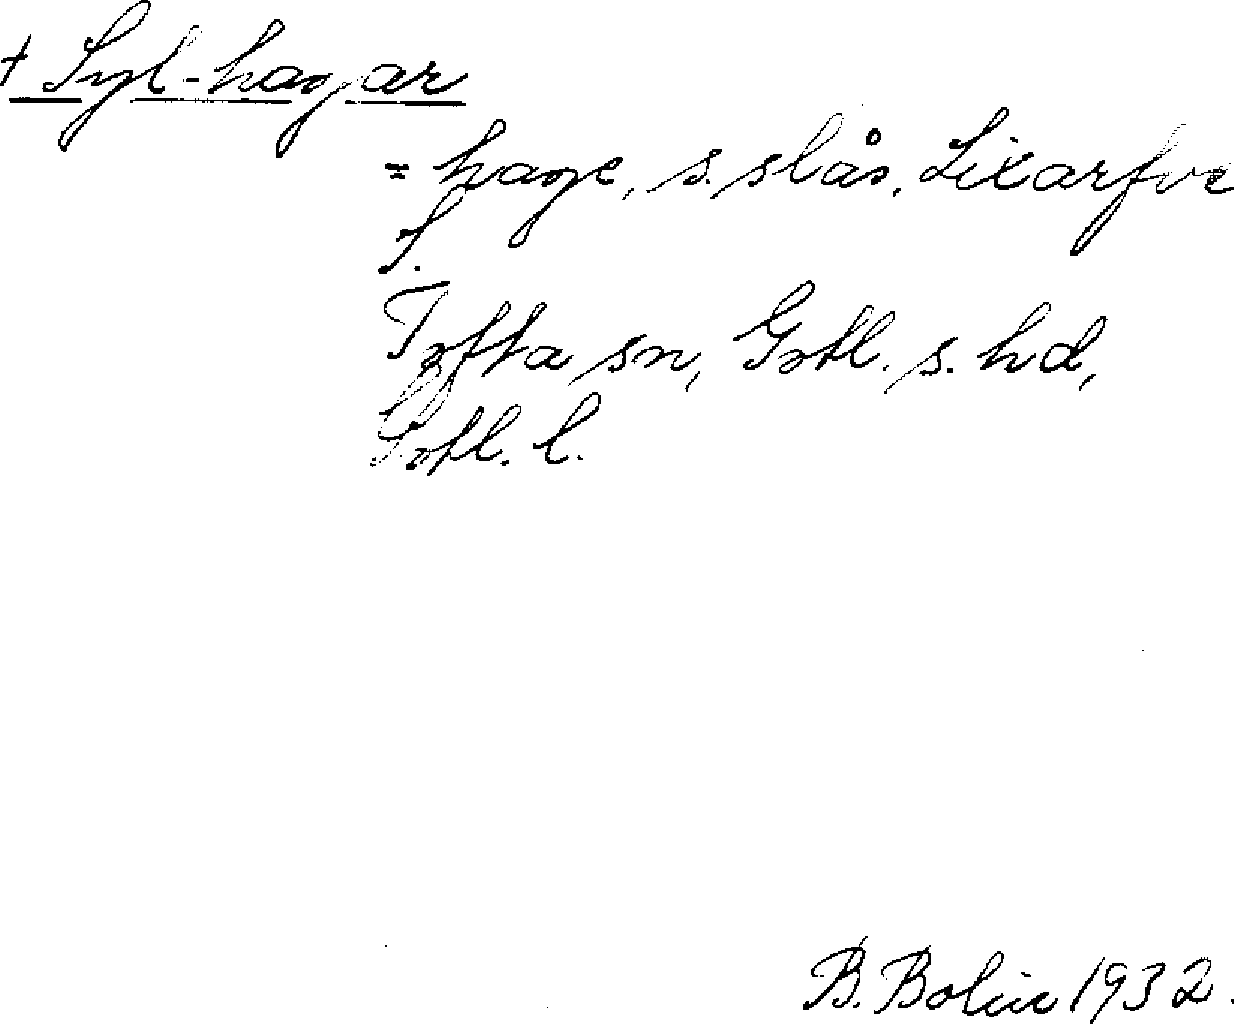 + Syl-hagar
= hage, s. slås, Lixarfve
S.
Tofta sn, Gotl. s. hd,
Gotl. l.
B. Bolin 1932.